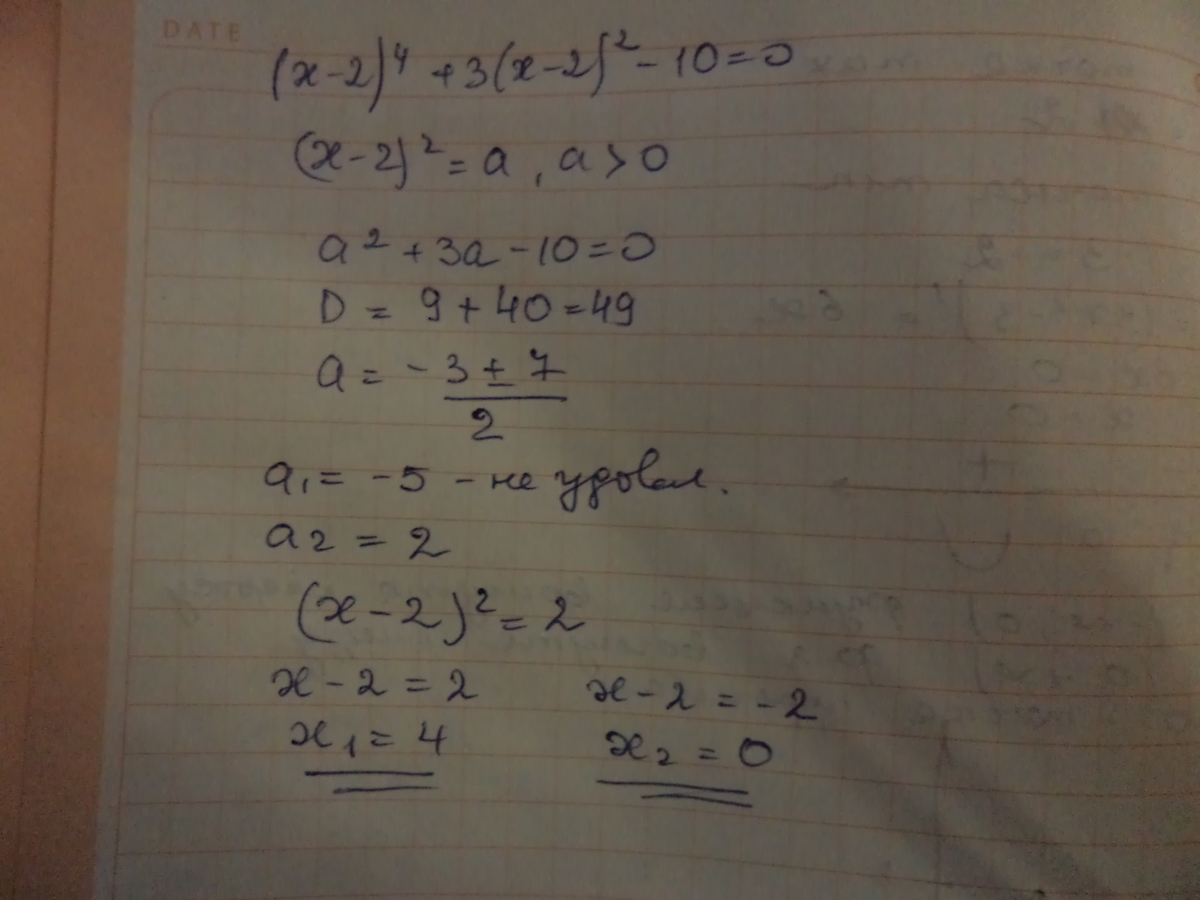 DATE
(x-2)⁴ + 3(x-2)² - 10 = 0
(x-2)² = a, a > 0
a² + 3a - 10 = 0
D = 9 + 40 = 49
a = - 3 ± 7
2
a₁ = -5 - не удовл.
a₂ = 2
(x-2)² = 2
x - 2 = 2 x - 2 = -2
x₁ = 4 x₂ = 0